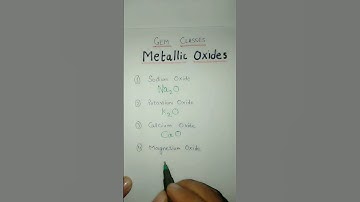 GEM CLASSES
Metallic Oxides
① Sodium Oxide
Na₂O
② Potassium Oxide
K₂O
③ Calcium Oxide
CaO
④ Magnesium Oxide